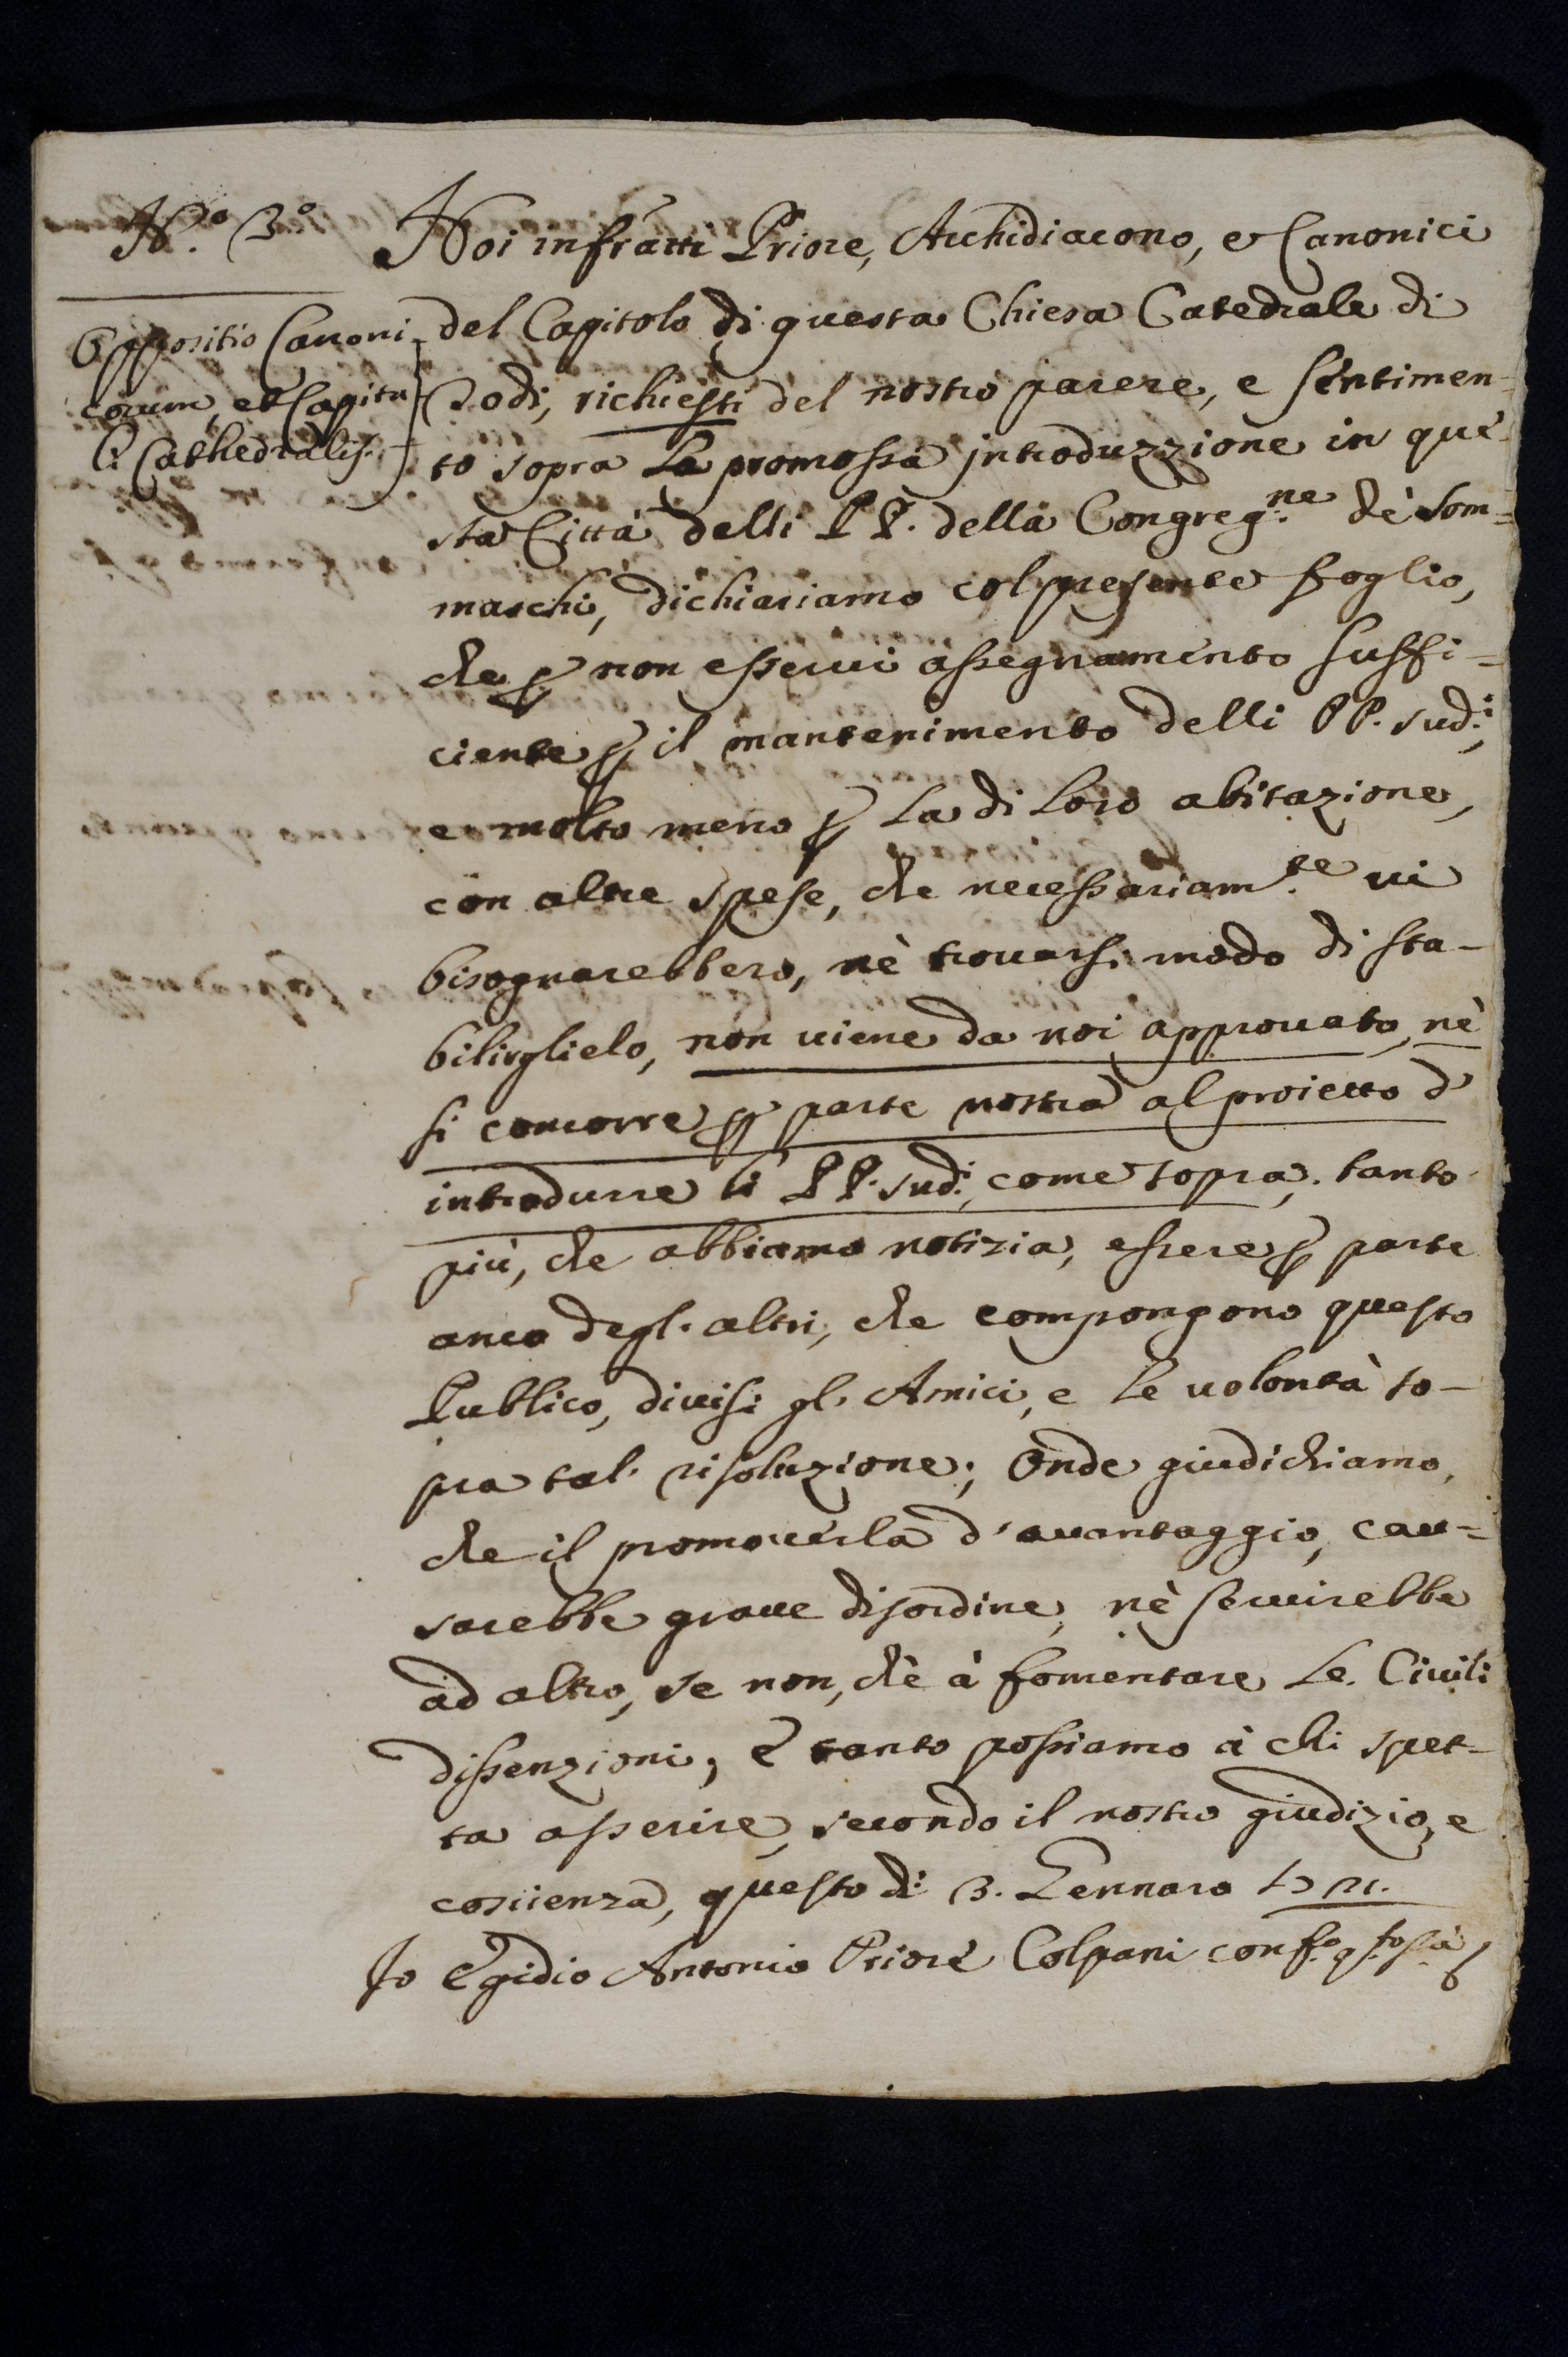 N.o 3o
Oppositio Canoni-
corum, et Capitu
li Cathedralis.
Noi infratti Priore, Archidiacono, e Canonici
del Capitolo di questa Chiesa Catedrale di
Todi, richiesti del nostro parere, e sentimen-
to sopra la promossa introduzzione in que-
sta Città delli PP. della Congreg.ne de Som=
maschi, dichiariamo col presente foglio,
che p non esservi assegnamento suffi=
ciente p il mantenimento delli PP. sud.i,
e molto meno p la di loro abitazione,
con altre spese, che necessariam.te vi
bisognarebbero, nè trovarsi modo di sta-
bilirglielo, non viene da noi approvato, nè
si concorre p parte nostra al proietto d'
introdurre li PP. sud.i, come sopra; tanto
più, che abbiamo notizia, essere p parte
anco degl' altri, che compongono questo
Publico, divisi gl' Amici, e le volontà so-
pra tal' risoluzione; Onde giudichiamo,
che il promoverla d'avantaggio, cau=
sarebbe grave disordine, nè servirebbe
ad altro, se non, chè à fomentare le Civili
dissenzioni, e tanto possiamo à chi spet-
ta asserire, secondo il nostro giudizio, e
coscienza, questo dì 3. Gennaro
Io Egidio Antonio Priore Colpani conf.o q.to sà